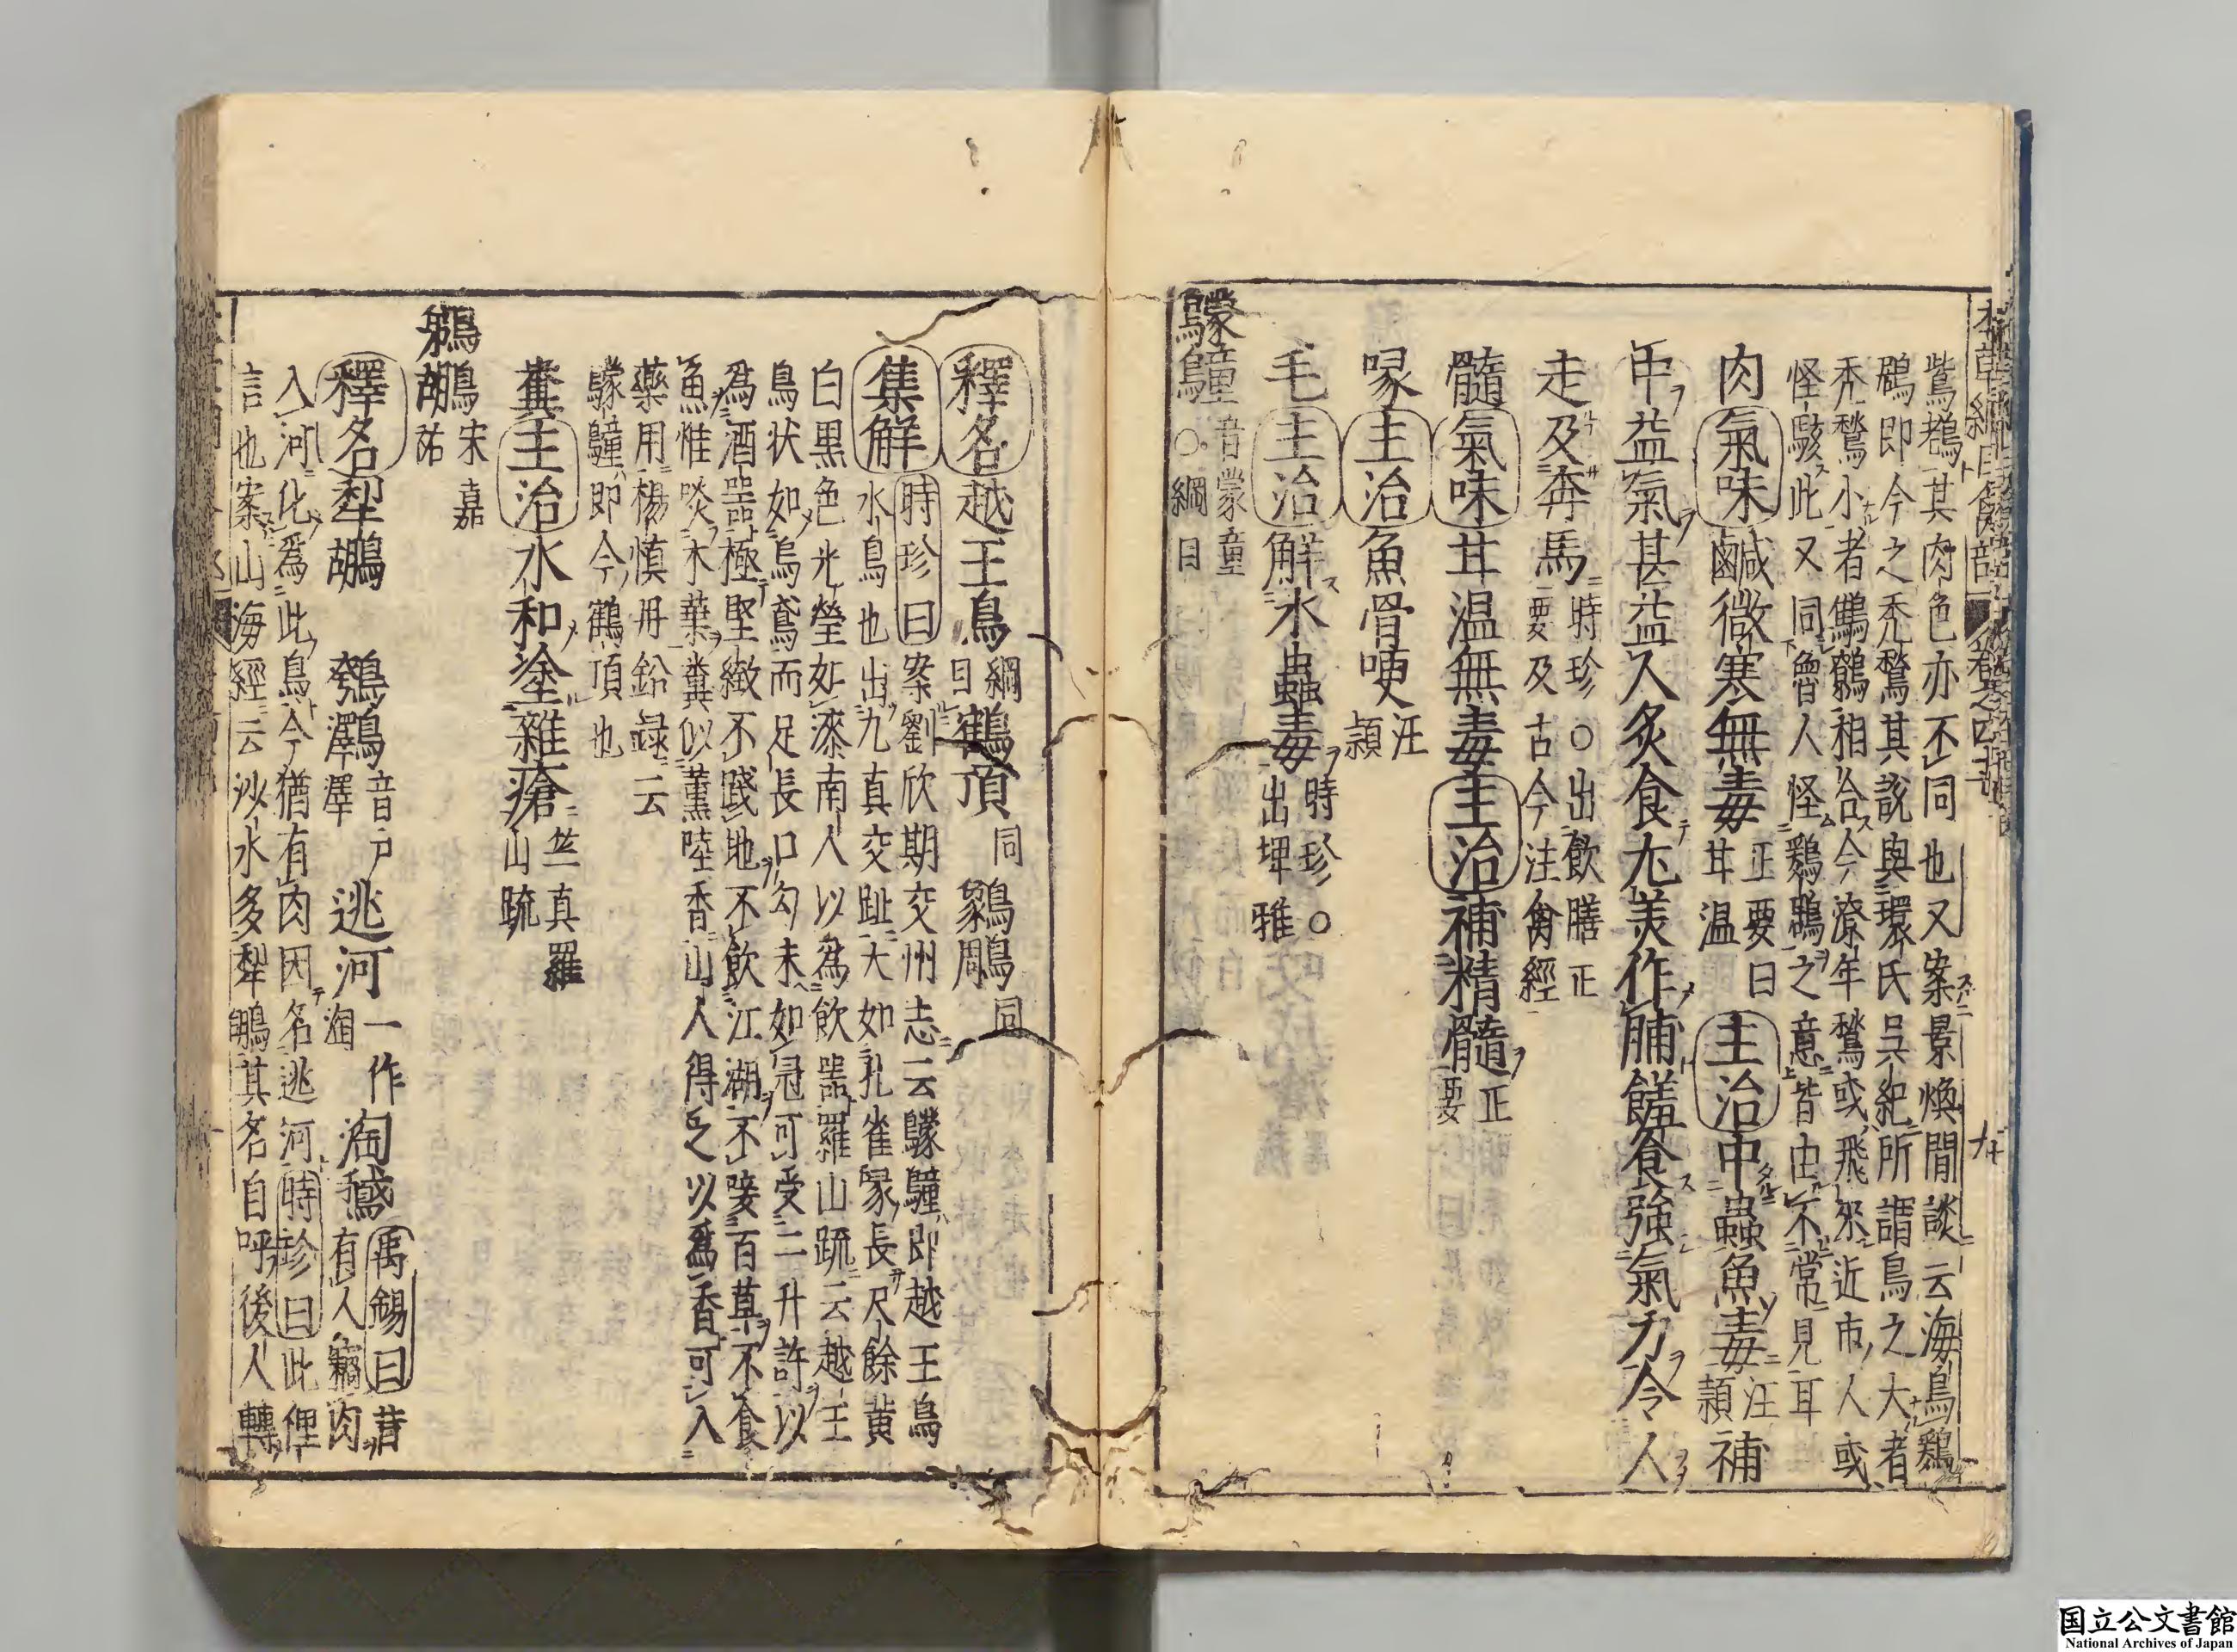 本草綱目禽部 卷之四十七
鴜鷀其肉色亦不同也又案景煥閒談云海鳥鶢
鶋即今之禿鶖其說與環氏吳紀所謂鳥之大者
禿鶖小者鷦鷯相合今潦年鶖或飛來近市人或
怪駭此又同魯人怪鶢鶋之意皆由不常見耳
肉氣味鹹微寒無毒正要曰甘温主治中蟲魚毒汪頴補
中益氣甚益人炙食尤美作脯饈食強氣力令人
走及奔馬時珍○出飲膳正要及古今注禽經
髓氣味甘温無毒主治補精髓正要
喙主治魚骨哽汪頴
毛主治解水蟲毒時珍○出埤雅
鸏䴀音蒙童○綱目
釋名越王鳥綱目鶴頂同鶨鵰同
集解時珍曰案劉欣期交州志云鸏䴀即越王鳥
水鳥也出九真交趾大如孔雀喙長尺餘黄
白黒色光瑩如漆南人以為飲器羅山疏云越王
鳥状如烏鳶而足長口勾末如冠可受二升許以
爲酒器極堅緻不踐地不飲江湖不唼百草不食
魚惟啖木葉糞似薰陸香山人得之以爲香可入
藥用楊慎丹鉛録云
鸏䴀即今鶴頂也
糞主治水和塗雜瘡竺真羅山疏
鵜鶘宋嘉祐
釋名犁鶘 鴮鸅音戶澤 逃河一作淘 淘鵞禹錫曰昔有人竊肉
入河化爲此鳥今猶有肉因名逃河時珍曰此俚
言也案山海經云沙水多犁鶘其名自呼後人轉
国立公文書館
National Archives of Japan